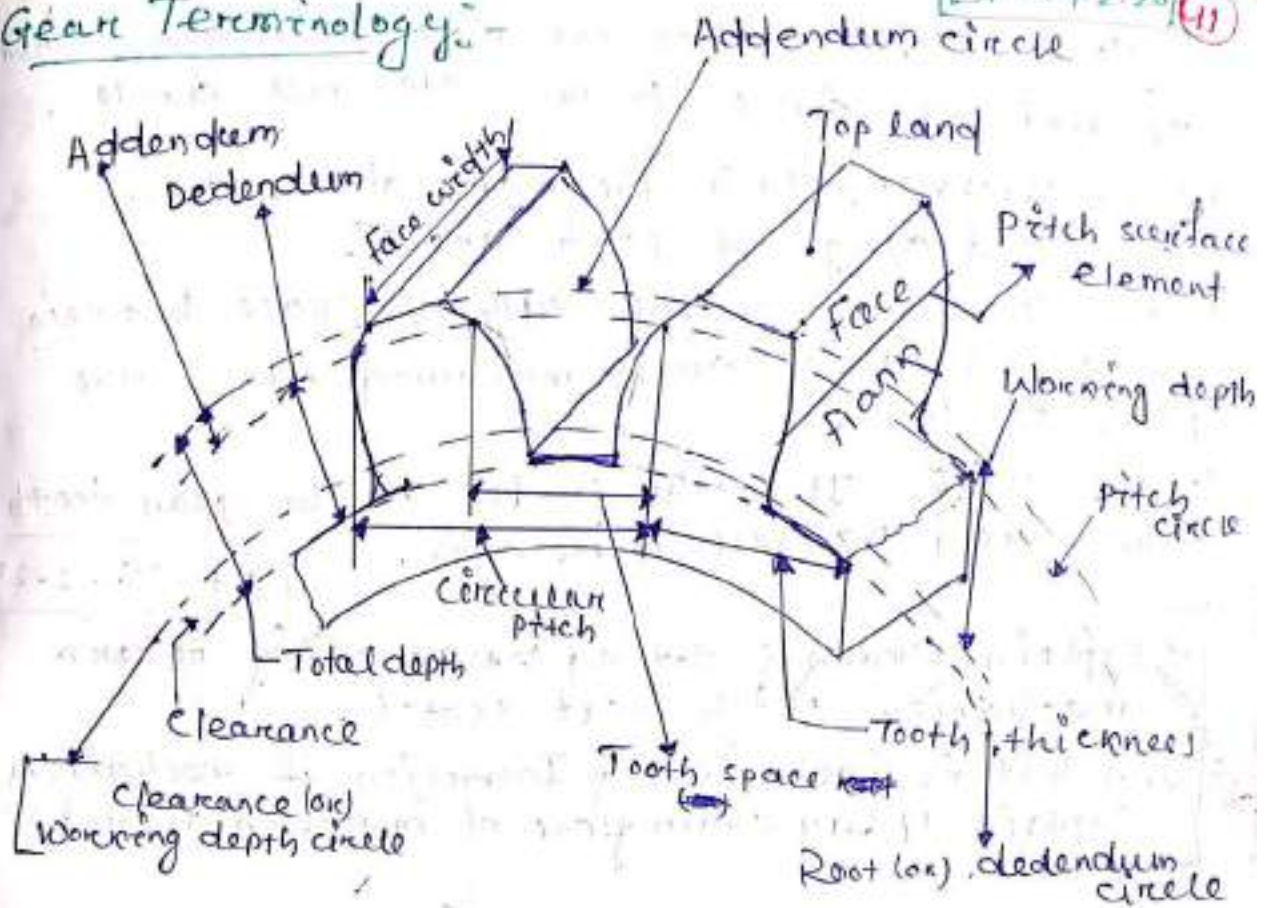 Gear Terminology:-
11
Addendum circle
Addendum
Dedendum
Face width
Top land
Pitch surface
element
Face
Flank
Working depth
Pitch
circle
Circular
pitch
Total depth
Clearance
Tooth thickness
Tooth space
Clearance (or)
Working depth circle
Root (or) dedendum
circle